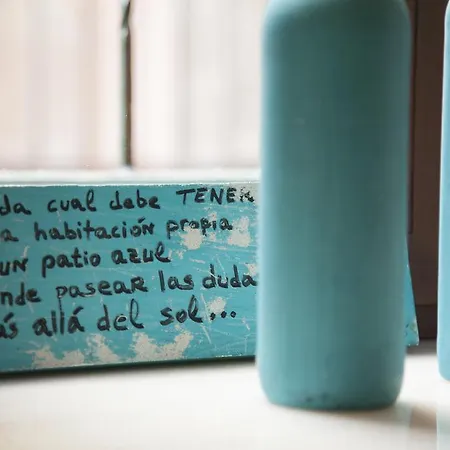 da cual debe TENER
a habitación propia
un patio azul
nde pasear las duda
ás allá del sol...